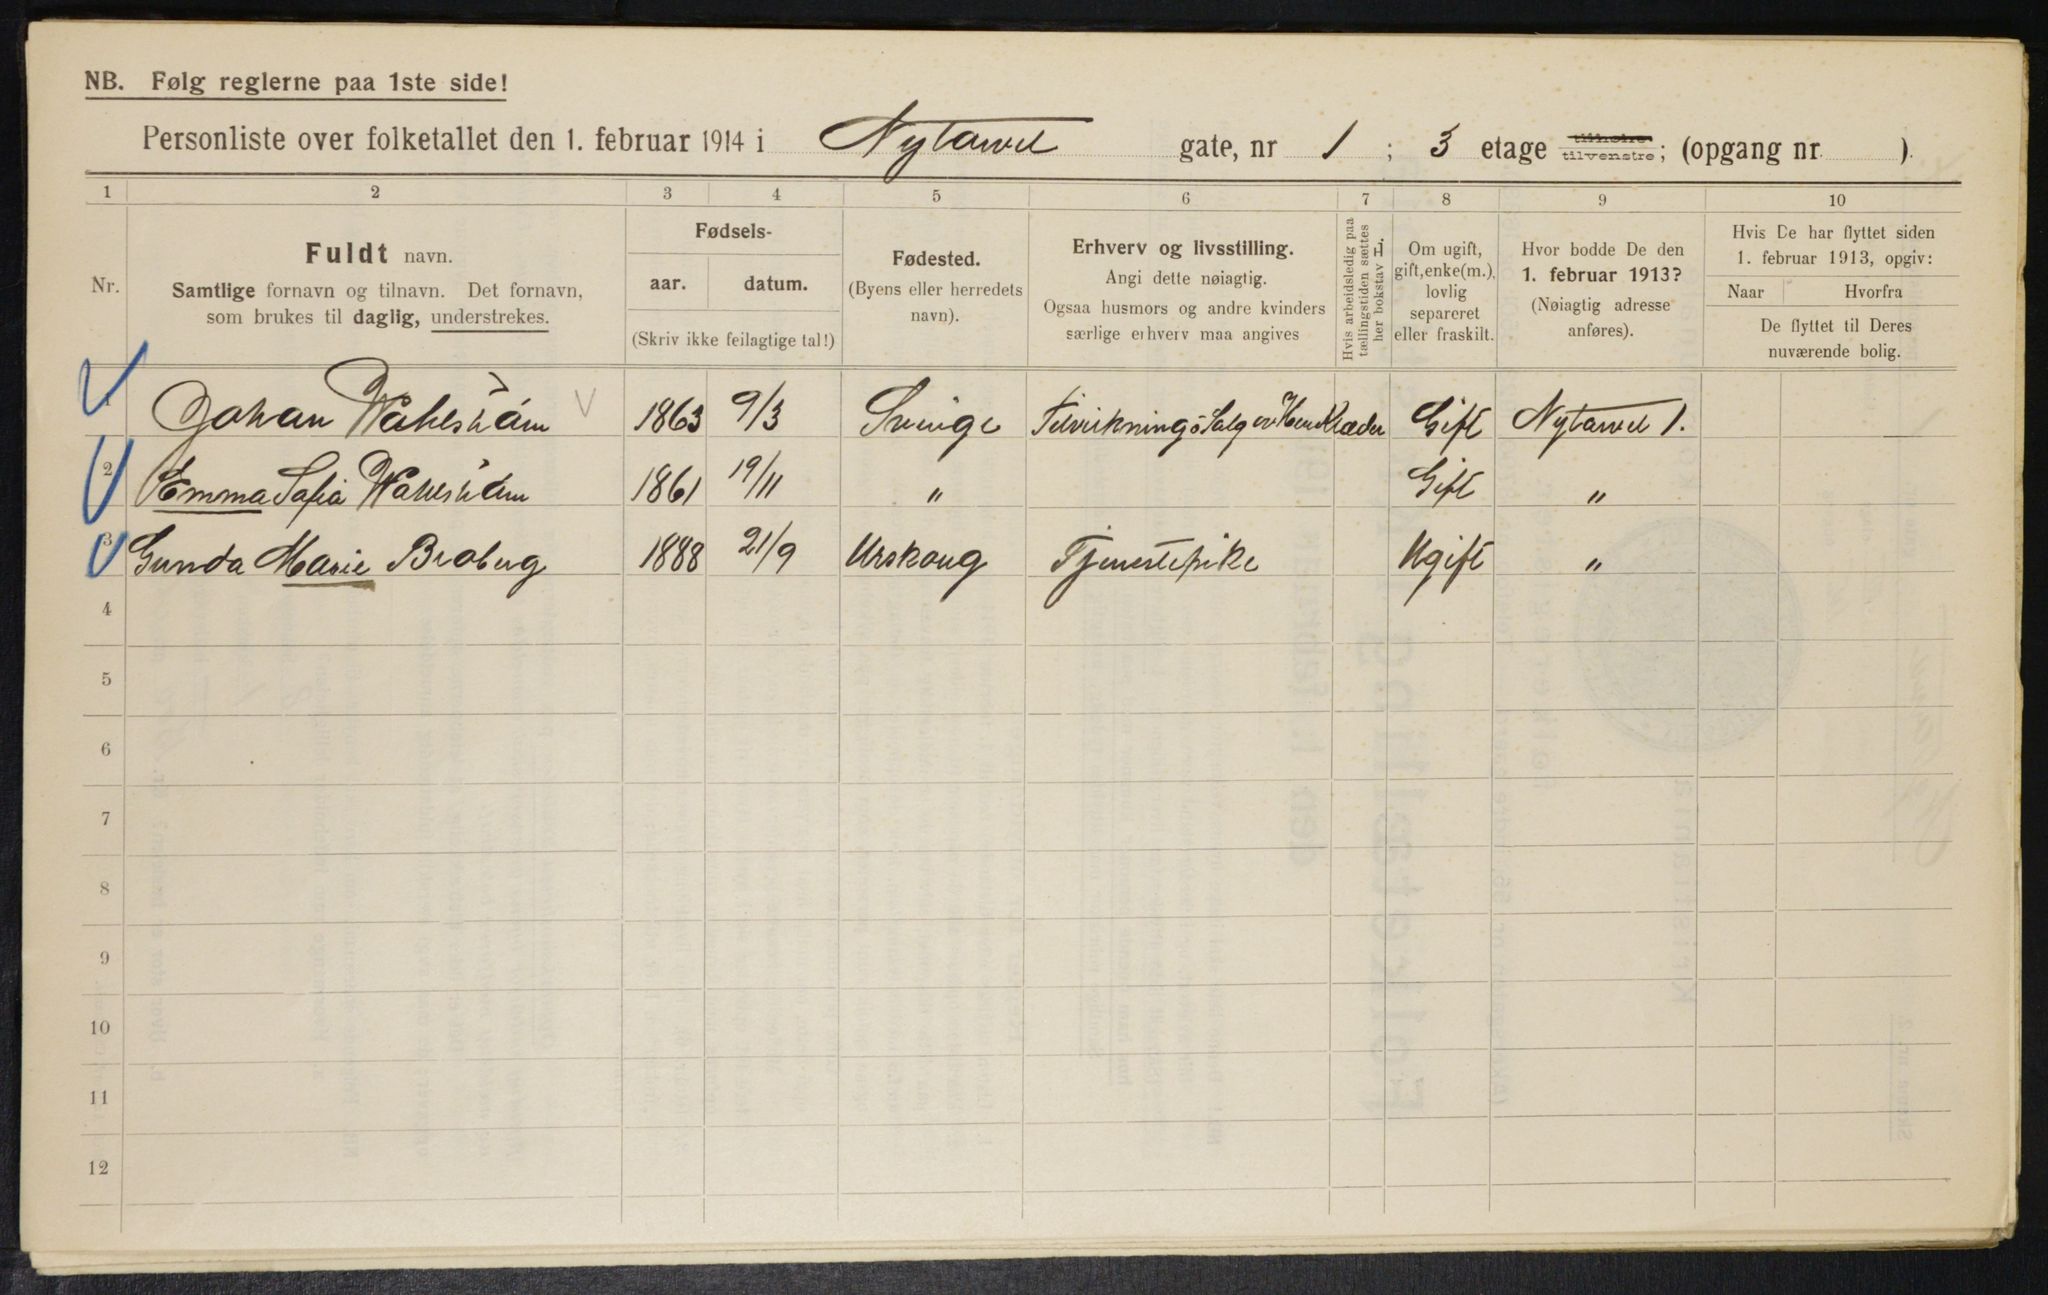 NB. Følg reglerne paa 1ste side!
Personliste over folketallet den 1. februar 1914 i Nytarvet gate, nr 1 ; 3 etage tilhøire tilvenstre; (opgang nr. ).
1 2 3 4 5 6 7 8 9 10
Nr.
Fuldt navn.
Samtlige fornavn og tilnavn. Det fornavn,
som brukes til daglig, understrekes.
Fødsels-
aar. datum.
(Skriv ikke feilagtige tal!)
Fødested.
(Byens eller herredets
navn).
Erhverv og livsstilling.
Angi dette nøiagtig.
Ogsaa husmors og andre kvinders
særlige erhverv maa angives
Hvis arbeidsledig paa
tællingstiden sættes
her bokstav L.
Om ugift,
gift, enke(m.),
lovlig
separeret
eller fraskilt.
Hvor bodde De den
1. februar 1913?
(Nøiagtig adresse
anføres).
Hvis De har flyttet siden
1. februar 1913, opgiv:
Naar Hvorfra
De flyttet til Deres
nuværende bolig.
Johan 1863 9/3 Sverige Tilvirkning &amp; Salg av Herreklæder Gift Nytarvet 1.
2 Emma Sofia 1861 19/11 " Gift "
3 Gunda Marie Broberg 1888 21/9 Urskoug Tjenestepike Ugift "
4
5
6
7
8
9
10
11
12